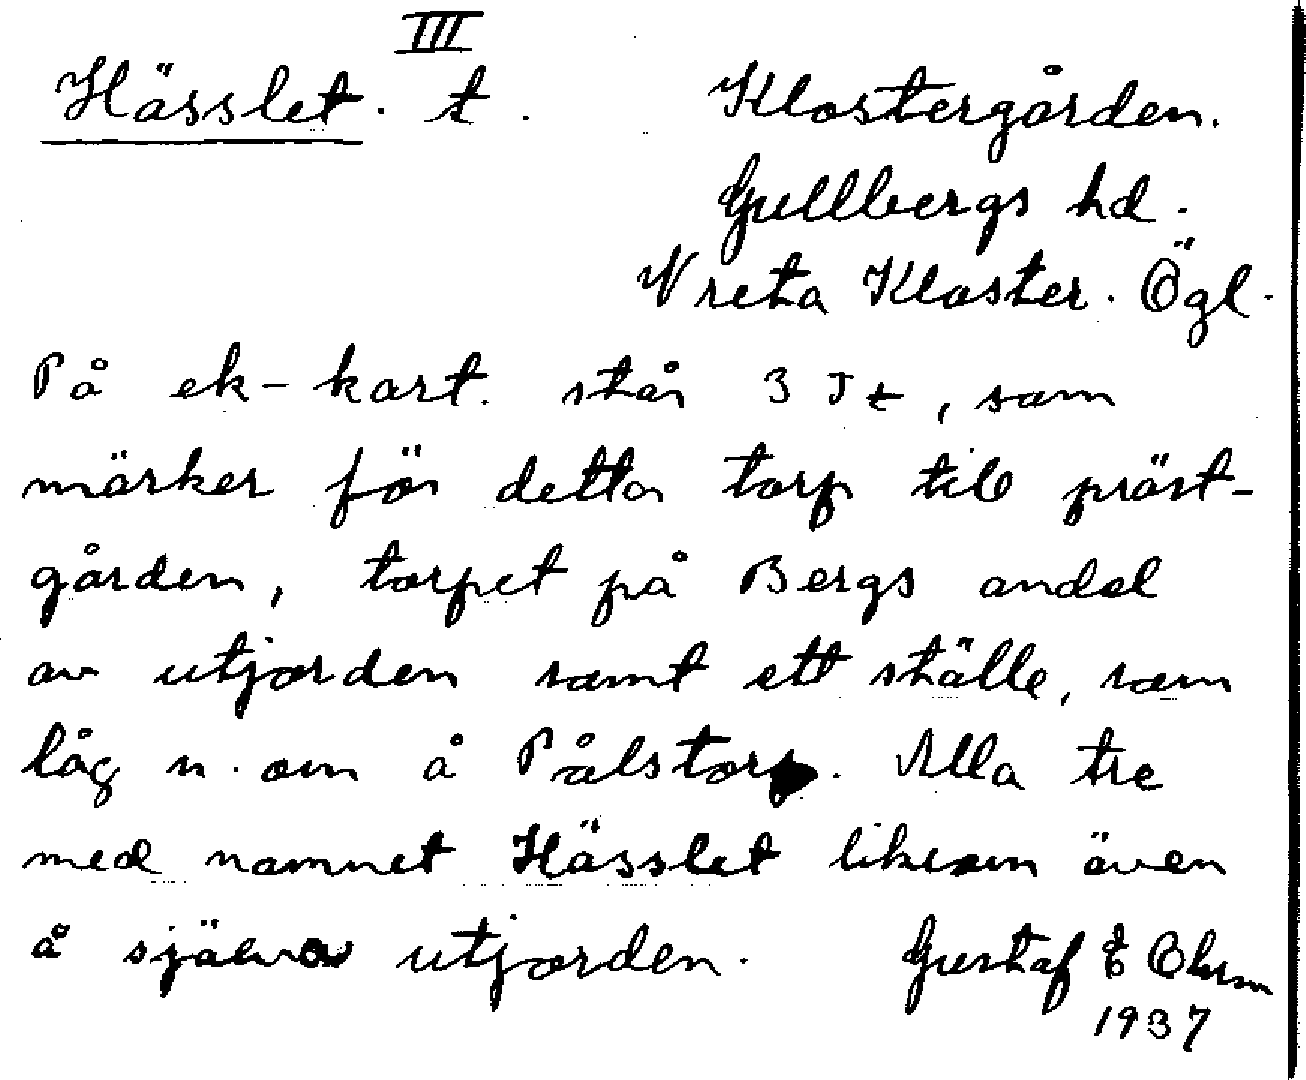 III
Hässlet. t. Klostergården.
Gullbergs hd.
Vreta Kloster. Ögl.
På ek-kart. står 3 st, som
märker för detta torp till präst-
gården, torpet på Bergs andel
av utjorden samt ett ställe, som
låg n. om å Pålstorp. Alla tre
med namnet Hässlet likesom även
å själva utjorden. Gustaf E
1937